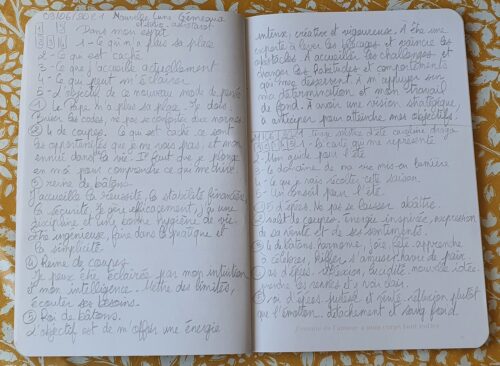 09/06/2021 Nouvelle Lune Gémeaux
Dans mon esprit
1 - Ce qui n'a plus sa place
2 - Ce qui est caché
3 - Ce que j'accueille actuellement
4 - Ce qui peut m'éclairer
5 - L'objectif de ce nouveau mode de pensé
① Le Pape n'a plus sa place. Je dois
briser les codes, ne pas se conformer aux normes
② 4 de coupes. Ce qui est caché ce sont
les opportunités que je ne vois pas, et mon
ennui dans la vie. Il faut que je plonge
en moi pour comprendre ce qui me
③ reine de bâtons.
J'accueille la réussite, la stabilité financière,
la sécurité, le non engagement, j'ai une
discipline et une bonne hygiène de vie.
Être ingénieuse, faire dans le pratique et
la simplicité
④ Reine de coupes
Je peux être éclairée par mon intuition
et mon intelligence. Mettre des limites,
écouter ses besoins.
⑤ Roi de bâtons.
L'objectif est de m'offrir une énergie
intense, créative et vigoureuse. À être une
experte à lever les blocages et vaincre les
obstacles. À accueillir les challenges et
changer les habitudes et comportements
qui me desservent. À m'appuyer sur
ma détermination et mon travail
de fond. À avoir une vision stratégique,
à anticiper pour atteindre mes objectifs.
Tirage d'été
1 - la carte qui me représente
2 - Mon guide pour l'été
3 - le domaine de ma vie mis en lumière
4 - Ce que je vais récolter cette saison
5 - Un conseil pour l'été.
① 5 d'épées. Ne pas se laisser abattre.
② valet de coupes. Énergie inspirée, expression
de sa vérité et de ses sentiments.
③ 4 de bâtons harmonie, joie, fête apprendre
à célébrer, kiffer, s'amuser, havre de paix
④ as d'épées. réflexion, lucidité, nouvelle idée.
prendre les rennes et y voir clair.
⑤ roi d'épées justice et vérité. réflexion plutôt
que l'émotion. détachement et sang froid.
J'envoie de l'amour à mon corps tout entier